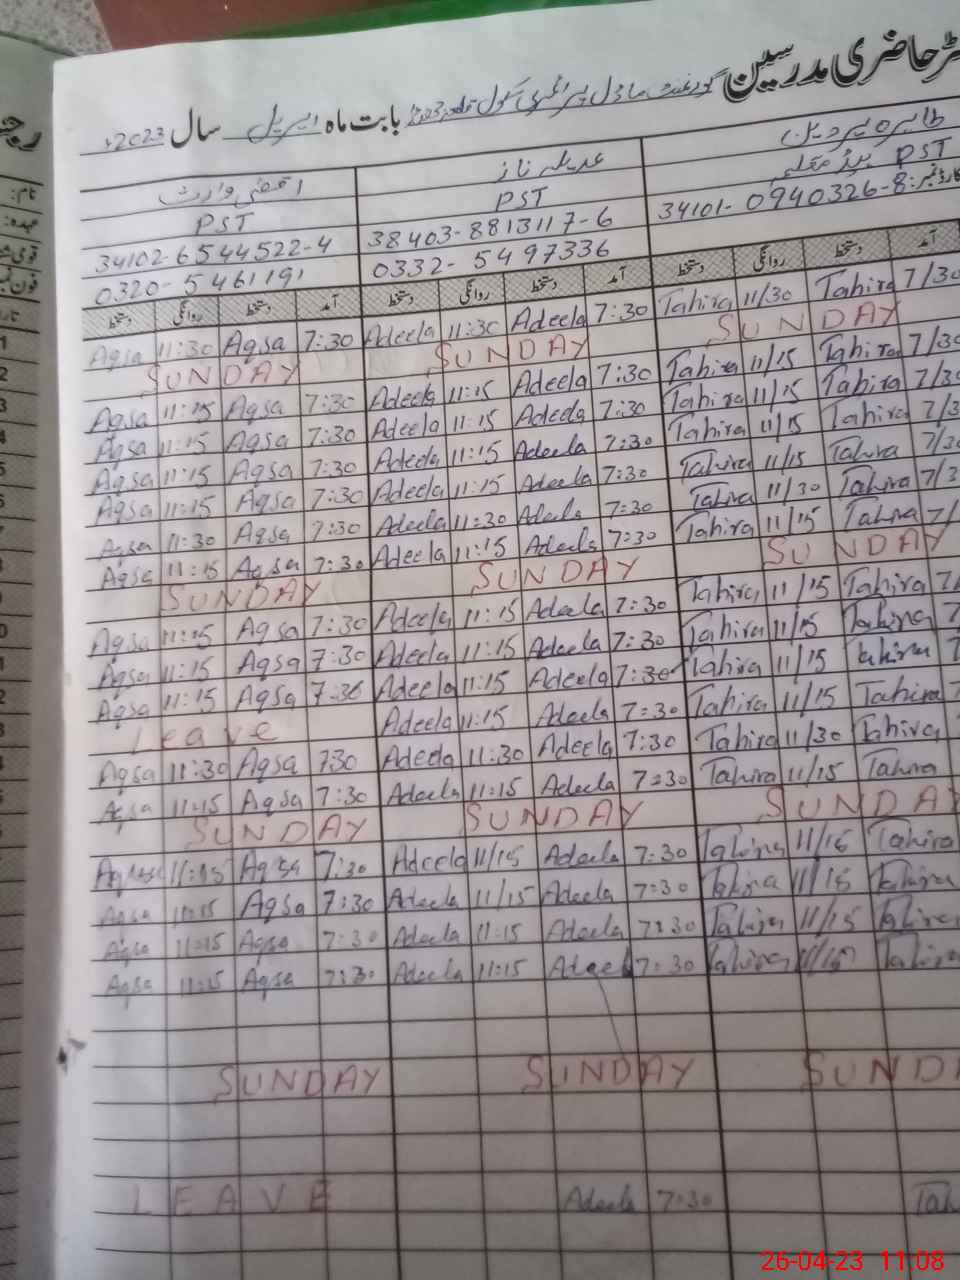 رجسٹر حاضری مدرسین گورنمنٹ ماڈل پرائمری سکول بابت ماہ اپریل سال 2023ء
اقصیٰ وارث عدیلہ ناز طاہرہ پروین
PST PST PST ہیڈ معلمہ
34102-6544522-4 38403-8813117-6 34101-0940326-8
0320-5461191 0332-5497336
دستخط روانگی دستخط آمد دستخط روانگی دستخط آمد دستخط روانگی دستخط آمد
Aqsa 11:30 Aqsa 7:30 Adeela 11:30 Adeela 7:30 Tahira 11/30 Tahira 7/30
SUNDAY SUNDAY SUNDAY
Aqsa 11:15 Aqsa 7:30 Adeela 11:15 Adeela 7:30 Tahira 11/15 Tahira 7/30
Aqsa 11:15 Aqsa 7:30 Adeela 11:15 Adeela 7:30 Tahira 11/15 Tahira 7/3
Aqsa 11:15 Aqsa 7:30 Adeela 11:15 Adeela 7:30 Tahira 11/15 Tahira 7/3
Aqsa 11:15 Aqsa 7:30 Adeela 11:15 Adeela 7:30 Tahira 11/15 Tahira 7/3
Aqsa 11:30 Aqsa 7:30 Adeela 11:30 Adeela 7:30 Tahira 11/30 Tahira 7/3
Aqsa 11:15 Aqsa 7:30 Adeela 11:15 Adeela 7:30 Tahira 11/15 Tahira 7/
SUNDAY SUNDAY SUNDAY
Aqsa 11:15 Aqsa 7:30 Adeela 11:15 Adeela 7:30 Tahira 11/15 Tahira 7/
Aqsa 11:15 Aqsa 7:30 Adeela 11:15 Adeela 7:30 Tahira 11/15 Tahira 7
Aqsa 11:15 Aqsa 7:30 Adeela 11:15 Adeela 7:30 Tahira 11/15 Tahira 7
Leave Adeela 11:15 Adeela 7:30 Tahira 11/15 Tahira 7
Aqsa 11:30 Aqsa 730 Adeela 11:30 Adeela 7:30 Tahira 11/30 Tahira 7
Aqsa 11:15 Aqsa 7:30 Adeela 11:15 Adeela 7:30 Tahira 11/15 Tahira
SUNDAY SUNDAY SUNDA
Aqsa 11:15 Aqsa 7:30 Adeela 11/15 Adeela 7:30 Tahira 11/15 Tahira
Aqsa 11:15 Aqsa 7:30 Adeela 11/15 Adeela 7:30 Tahira 11/15 Tahira
Aqsa 11:15 Aqsa 7:30 Adeela 11:15 Adeela 7:30 Tahira 11/15 Tahira
Aqsa 11:15 Aqsa 7:30 Adeela 11:15 Adeela 7:30 Tahira 11/15 Tahira
SUNDAY SUNDAY SUND
LEAVE Adeela 7:30 Tah
26-04-23 11:08